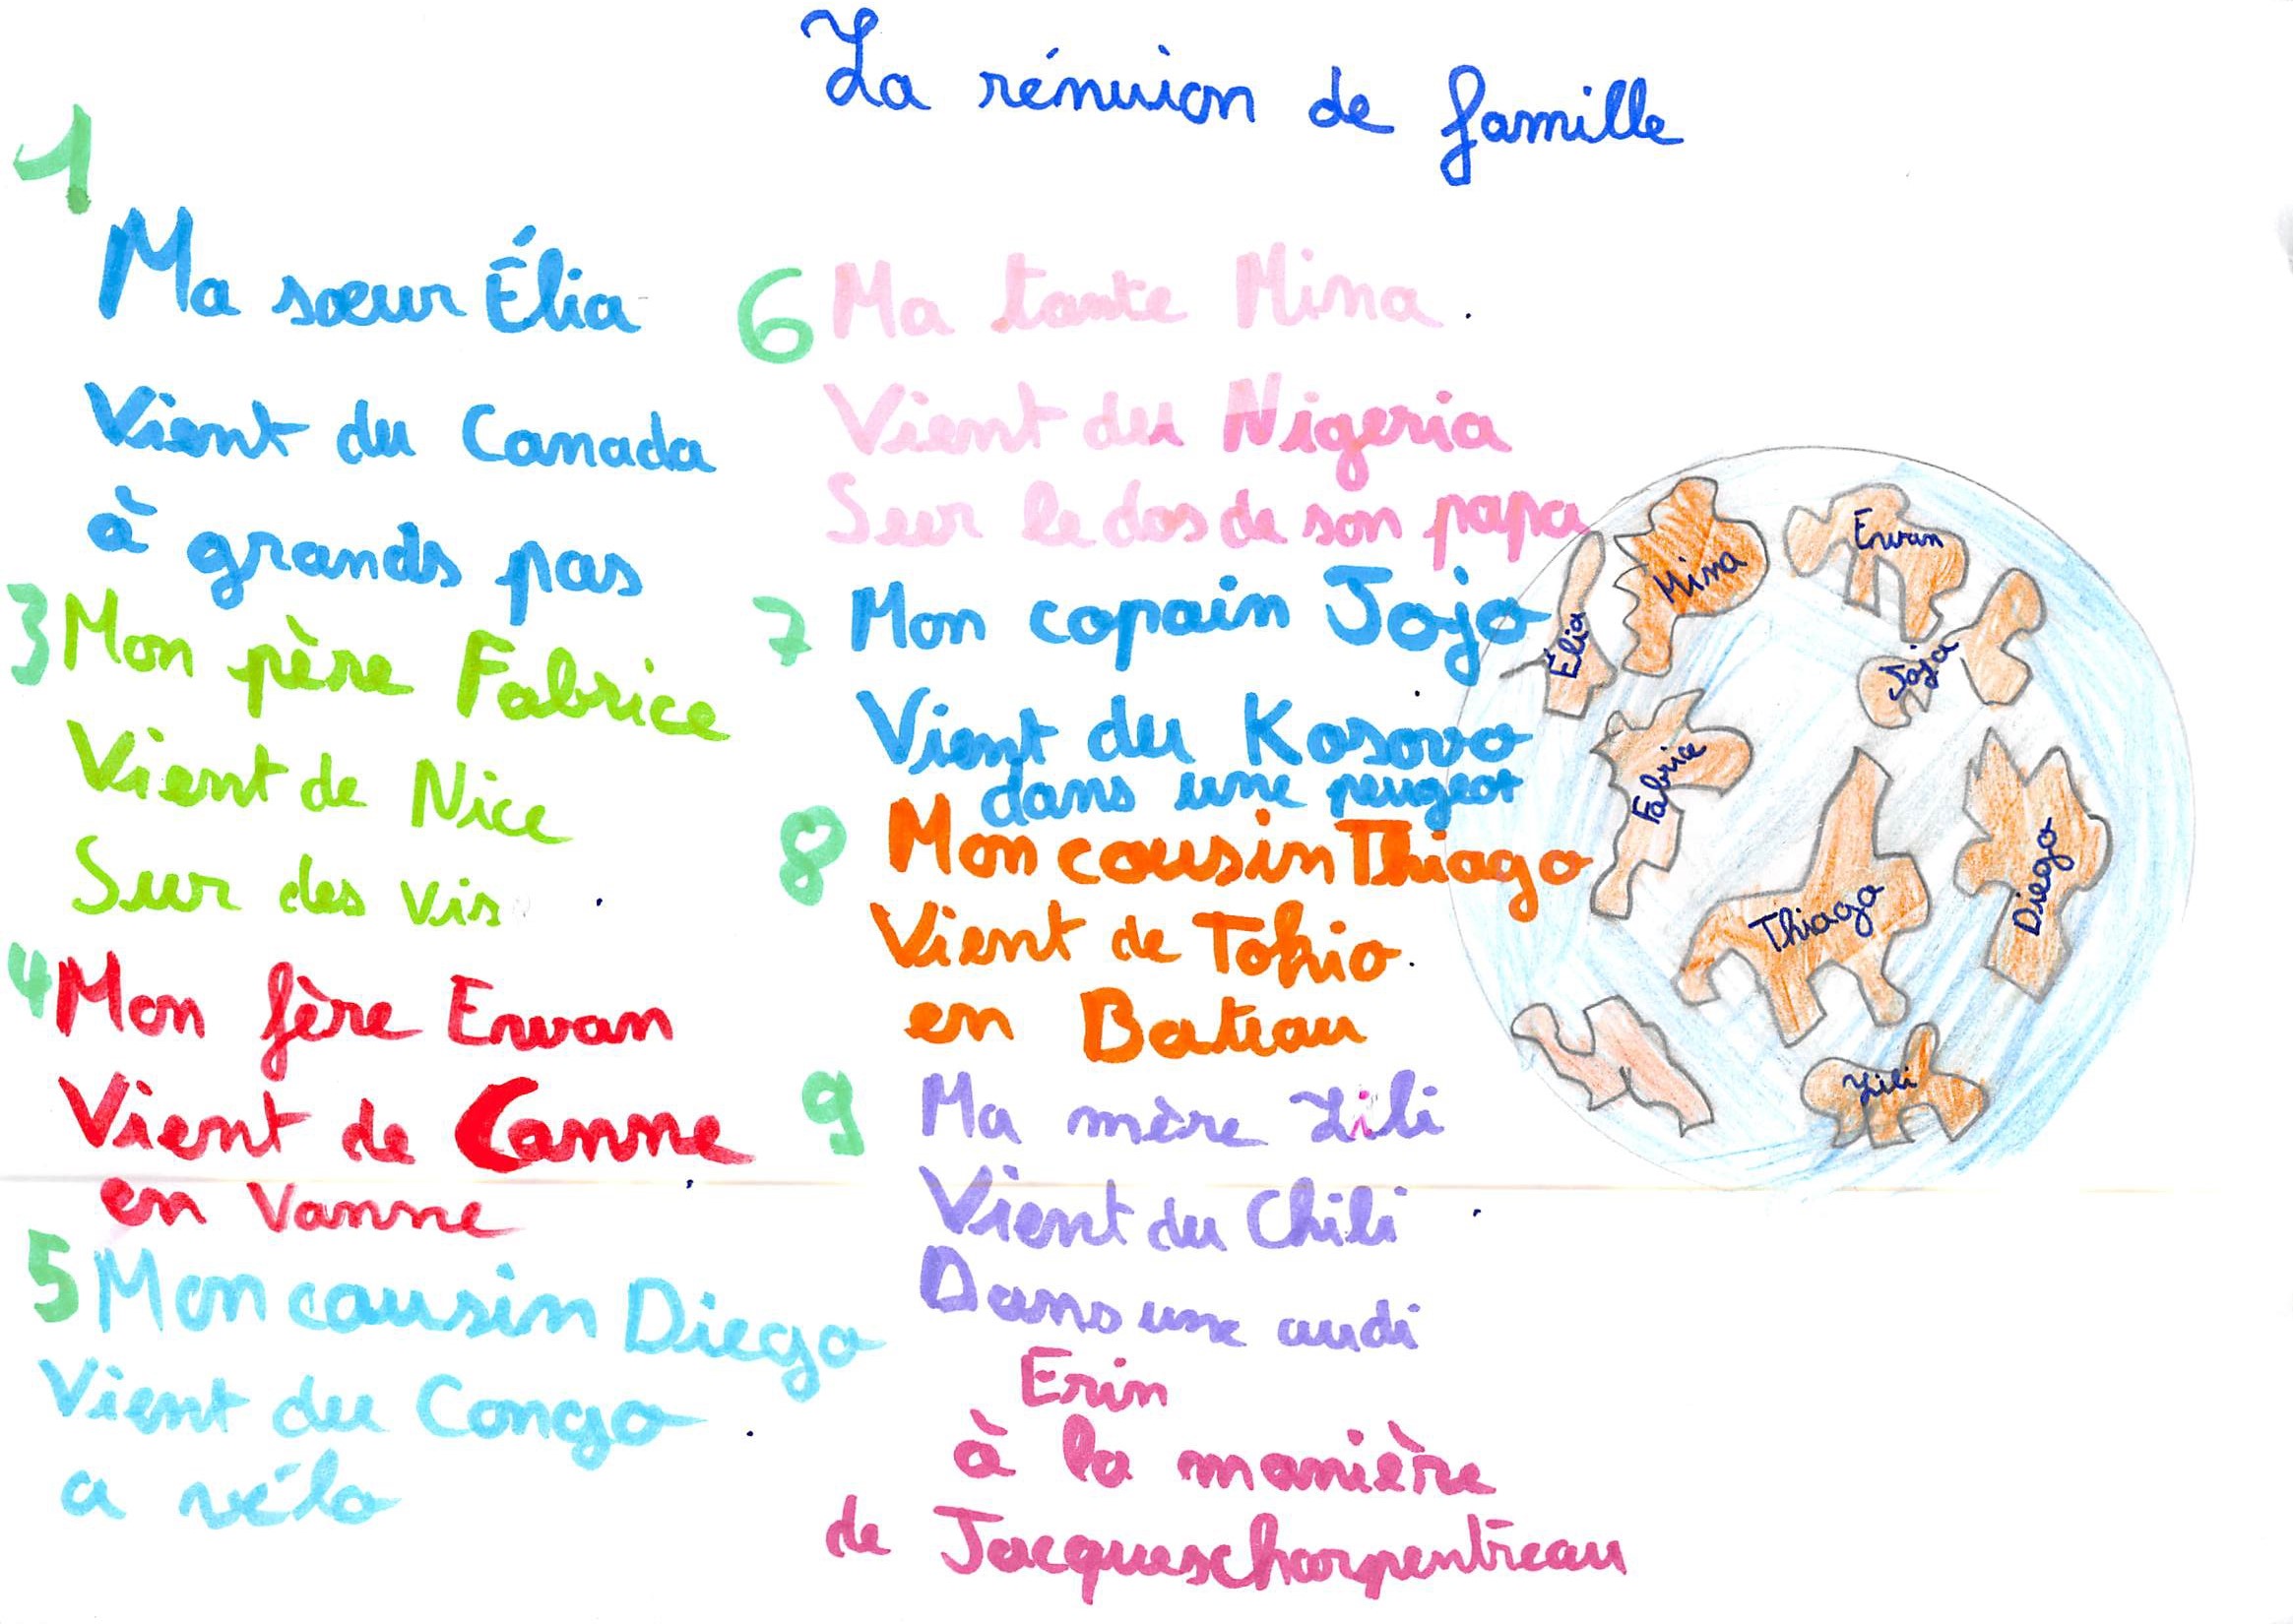 La rénuion de famille
1
Ma sœur Élia
Vient du Canada
à grands pas
3 Mon père Fabrice
Vient de Nice
Sur des vis
4 Mon fère Erwan
Vient de Canne
en Vanne
5 Mon cousin Diego
Vient du Congo
a vélo
6 Ma tante Mina
Vient du Nigeria
Sur le dos de son papa
7 Mon copain Jojo
Vient du Kosovo
dans une peugeot
8 Mon cousin Thiago
Vient de Tokio
en Bateau
9 Ma mère Lili
Vient du Chili
Dans une audi
Erin
à la manière
de Jacques charpentreau
Élia
Mina
Erwan
Jojo
Fabrice
Thiago
Diego
Lili